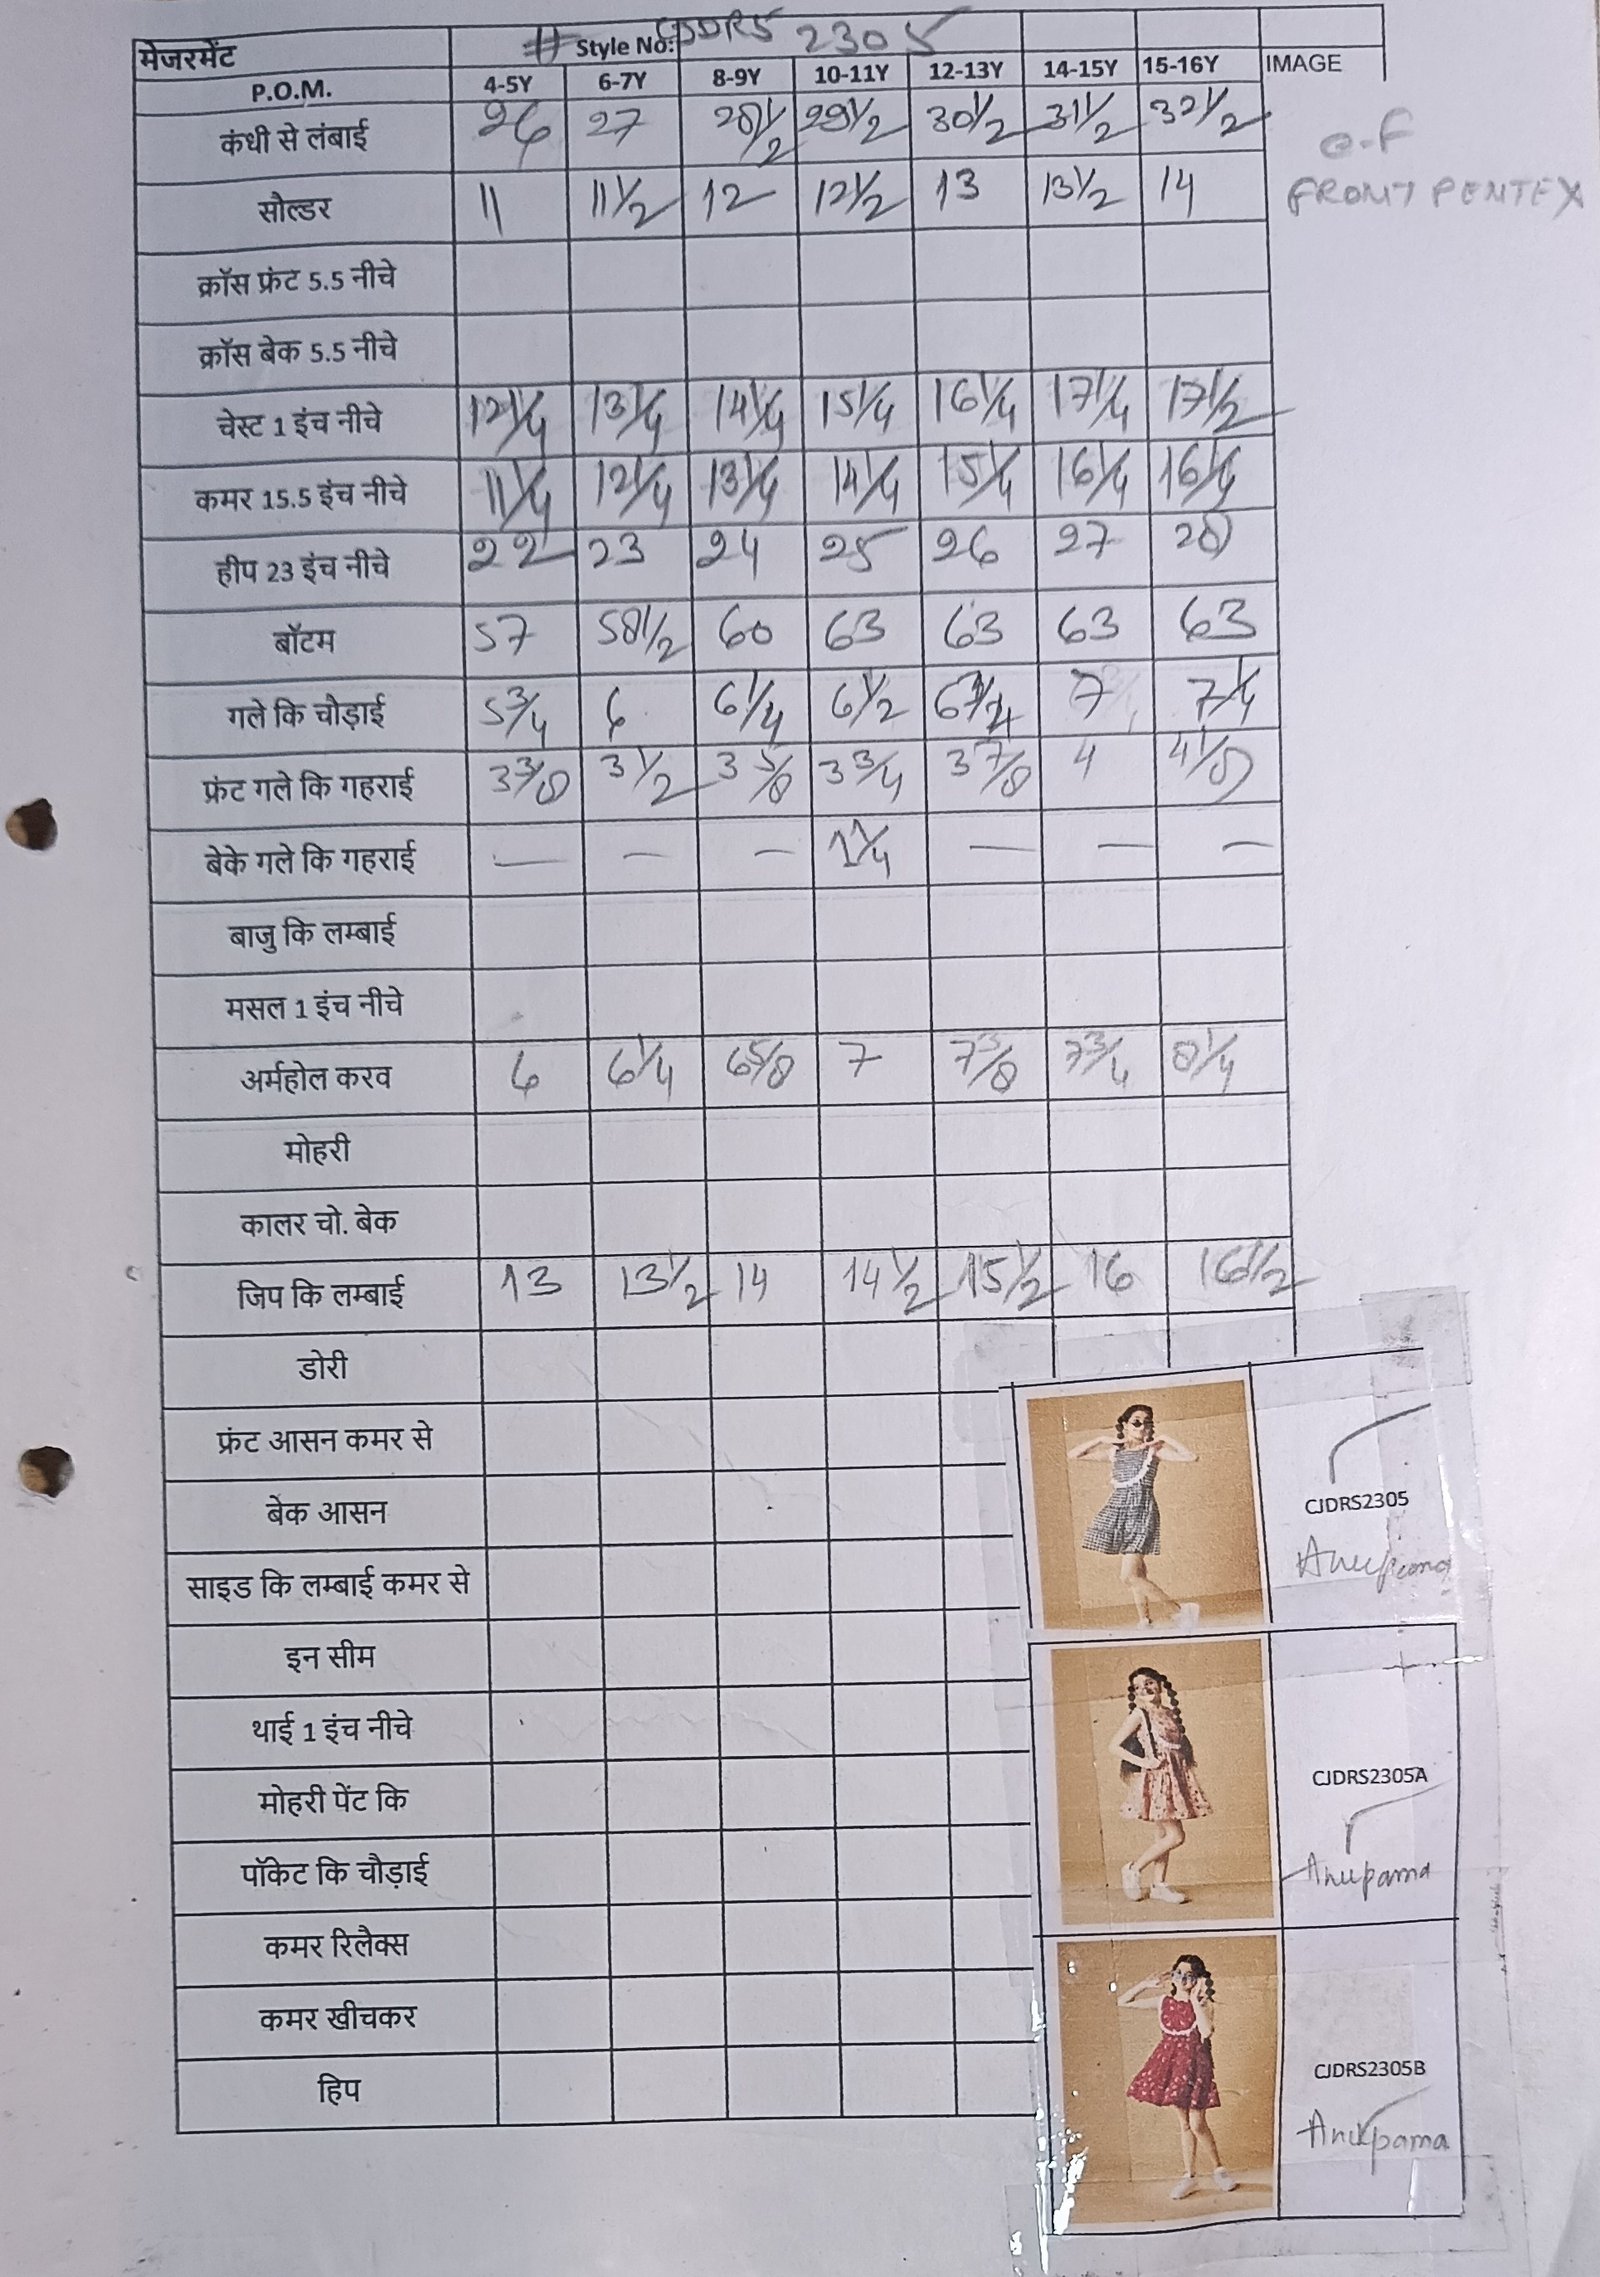 मेजरमेंट # Style No: CJDRS 2305
P.O.M. 4-5Y 6-7Y 8-9Y 10-11Y 12-13Y 14-15Y 15-16Y IMAGE
कंधी से लंबाई 26 27 28 1/2 29 1/2 30 1/2 31 1/2 32 1/2
FRONT PENTEX
सौल्डर 11 11 1/2 12 12 1/2 13 13 1/2 14
क्रॉस फ्रंट 5.5 नीचे
क्रॉस बेक 5.5 नीचे
चेस्ट 1 इंच नीचे 12 1/4 13 1/4 14 1/4 15 1/4 16 1/4 17 1/4 17 1/2
कमर 15.5 इंच नीचे 11 1/4 12 1/4 13 1/4 14 1/4 15 1/4 16 1/4 16 1/4
हीप 23 इंच नीचे 22 23 24 25 26 27 28
बॉटम 57 58 1/2 60 63 63 63 63
गले कि चौड़ाई 5 3/4 6 6 1/4 6 1/2 7 7 1/4
फ्रंट गले कि गहराई 3 3/8 3 1/2 3 5/8 3 3/4 3 7/8 4 4 1/8
बेके गले कि गहराई — — — 1 1/4 — — —
बाजु कि लम्बाई
मसल 1 इंच नीचे
अर्महोल करव 6 6 1/4 6 5/8 7 7 3/8 7 3/4 8 1/4
मोहरी
कालर चो. बेक
जिप कि लम्बाई 13 13 1/2 14 14 1/2 15 1/2 16 16 1/2
डोरी
फ्रंट आसन कमर से
बेक आसन
साइड कि लम्बाई कमर से
इन सीम
थाई 1 इंच नीचे
मोहरी पेंट कि
पॉकेट कि चौड़ाई
कमर रिलैक्स
कमर खीचकर
हिप
CJDRS2305
Anupama
CJDRS2305A
Anupama
CJDRS2305B
Anupama